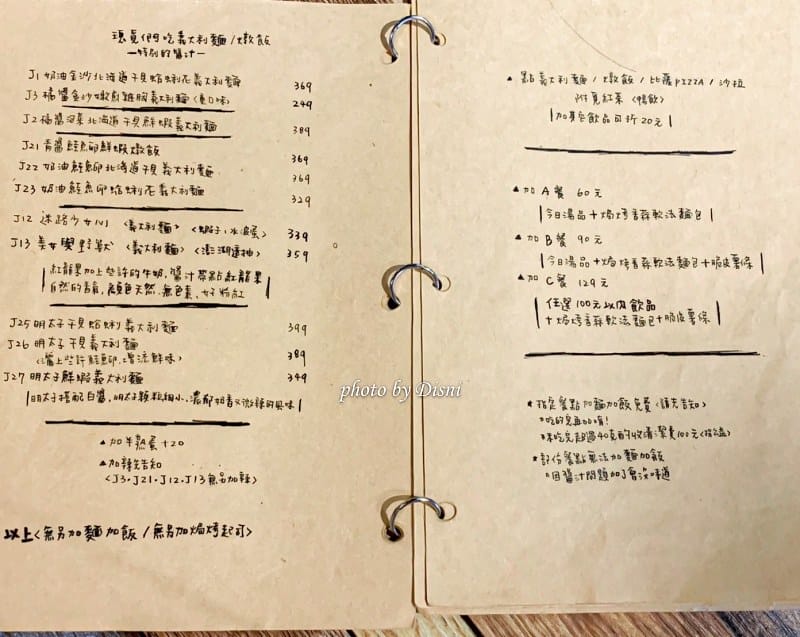 現覓們吃義大利麵/燉飯
一特別的醬汁一
J1 奶油金沙北海道干貝蛤蜊花義大利麵 369
J3 橘醬金沙嫩煎雞胸義大利麵(重口味) 249
J2 橘醬泡菜北海道干貝鮮蝦義大利麵 389
J21 青醬鮭魚卵鮮蝦燉飯 369
J22 奶油鮭魚卵北海道干貝義大利麵 369
J23 奶油鮭魚卵蛤蜊花義大利麵 329
J12 迷路少女心 〈義大利麵〉〈蝦子、水波蛋〉 339
J13 美女與野獸 〈義大利麵〉〈澎湖透抽〉 359
紅龍果加上些許的牛奶,醬汁帶點紅龍果
自然的甜,顏色天然、無色素、女子粉紅
J25 明太子干貝蛤蜊義大利麵 399
J26 明太子干貝義大利麵 389
(灑上些許鮭魚卵、增添鮮味)
J27 明太子鮮蝦義大利麵 349
明太子搭配白醬,明太子顆粒細小,濃郁甜香又微辣的風味
▲加半熟蛋+20
▲加辣先告知
〈J3.J21.J12.J13無品加辣〉
以上〈無另加麵加飯/無另加焗烤起司〉
▲點義大利麵/燉飯/比薩PIZZA/沙拉
附覓紅茶(暢飲)
加享受飲品可折20元
▲加A餐 60元
今日湯品+焗烤香蒜軟法麵包
▲加B餐 90元
今日湯品+焗烤香蒜軟法麵包+脆皮薯條
▲加C餐 129元
任選100元以內飲品
+焗烤香蒜軟法麵包+脆皮薯條
*指定餐點加麵加飯免費(請先告知)
吃的完再加唷!
沒吃完超過40克酌收清潔費100元
*部份餐點無法加麵加飯
因醬汁問題加了會沒味道
photo by Disni